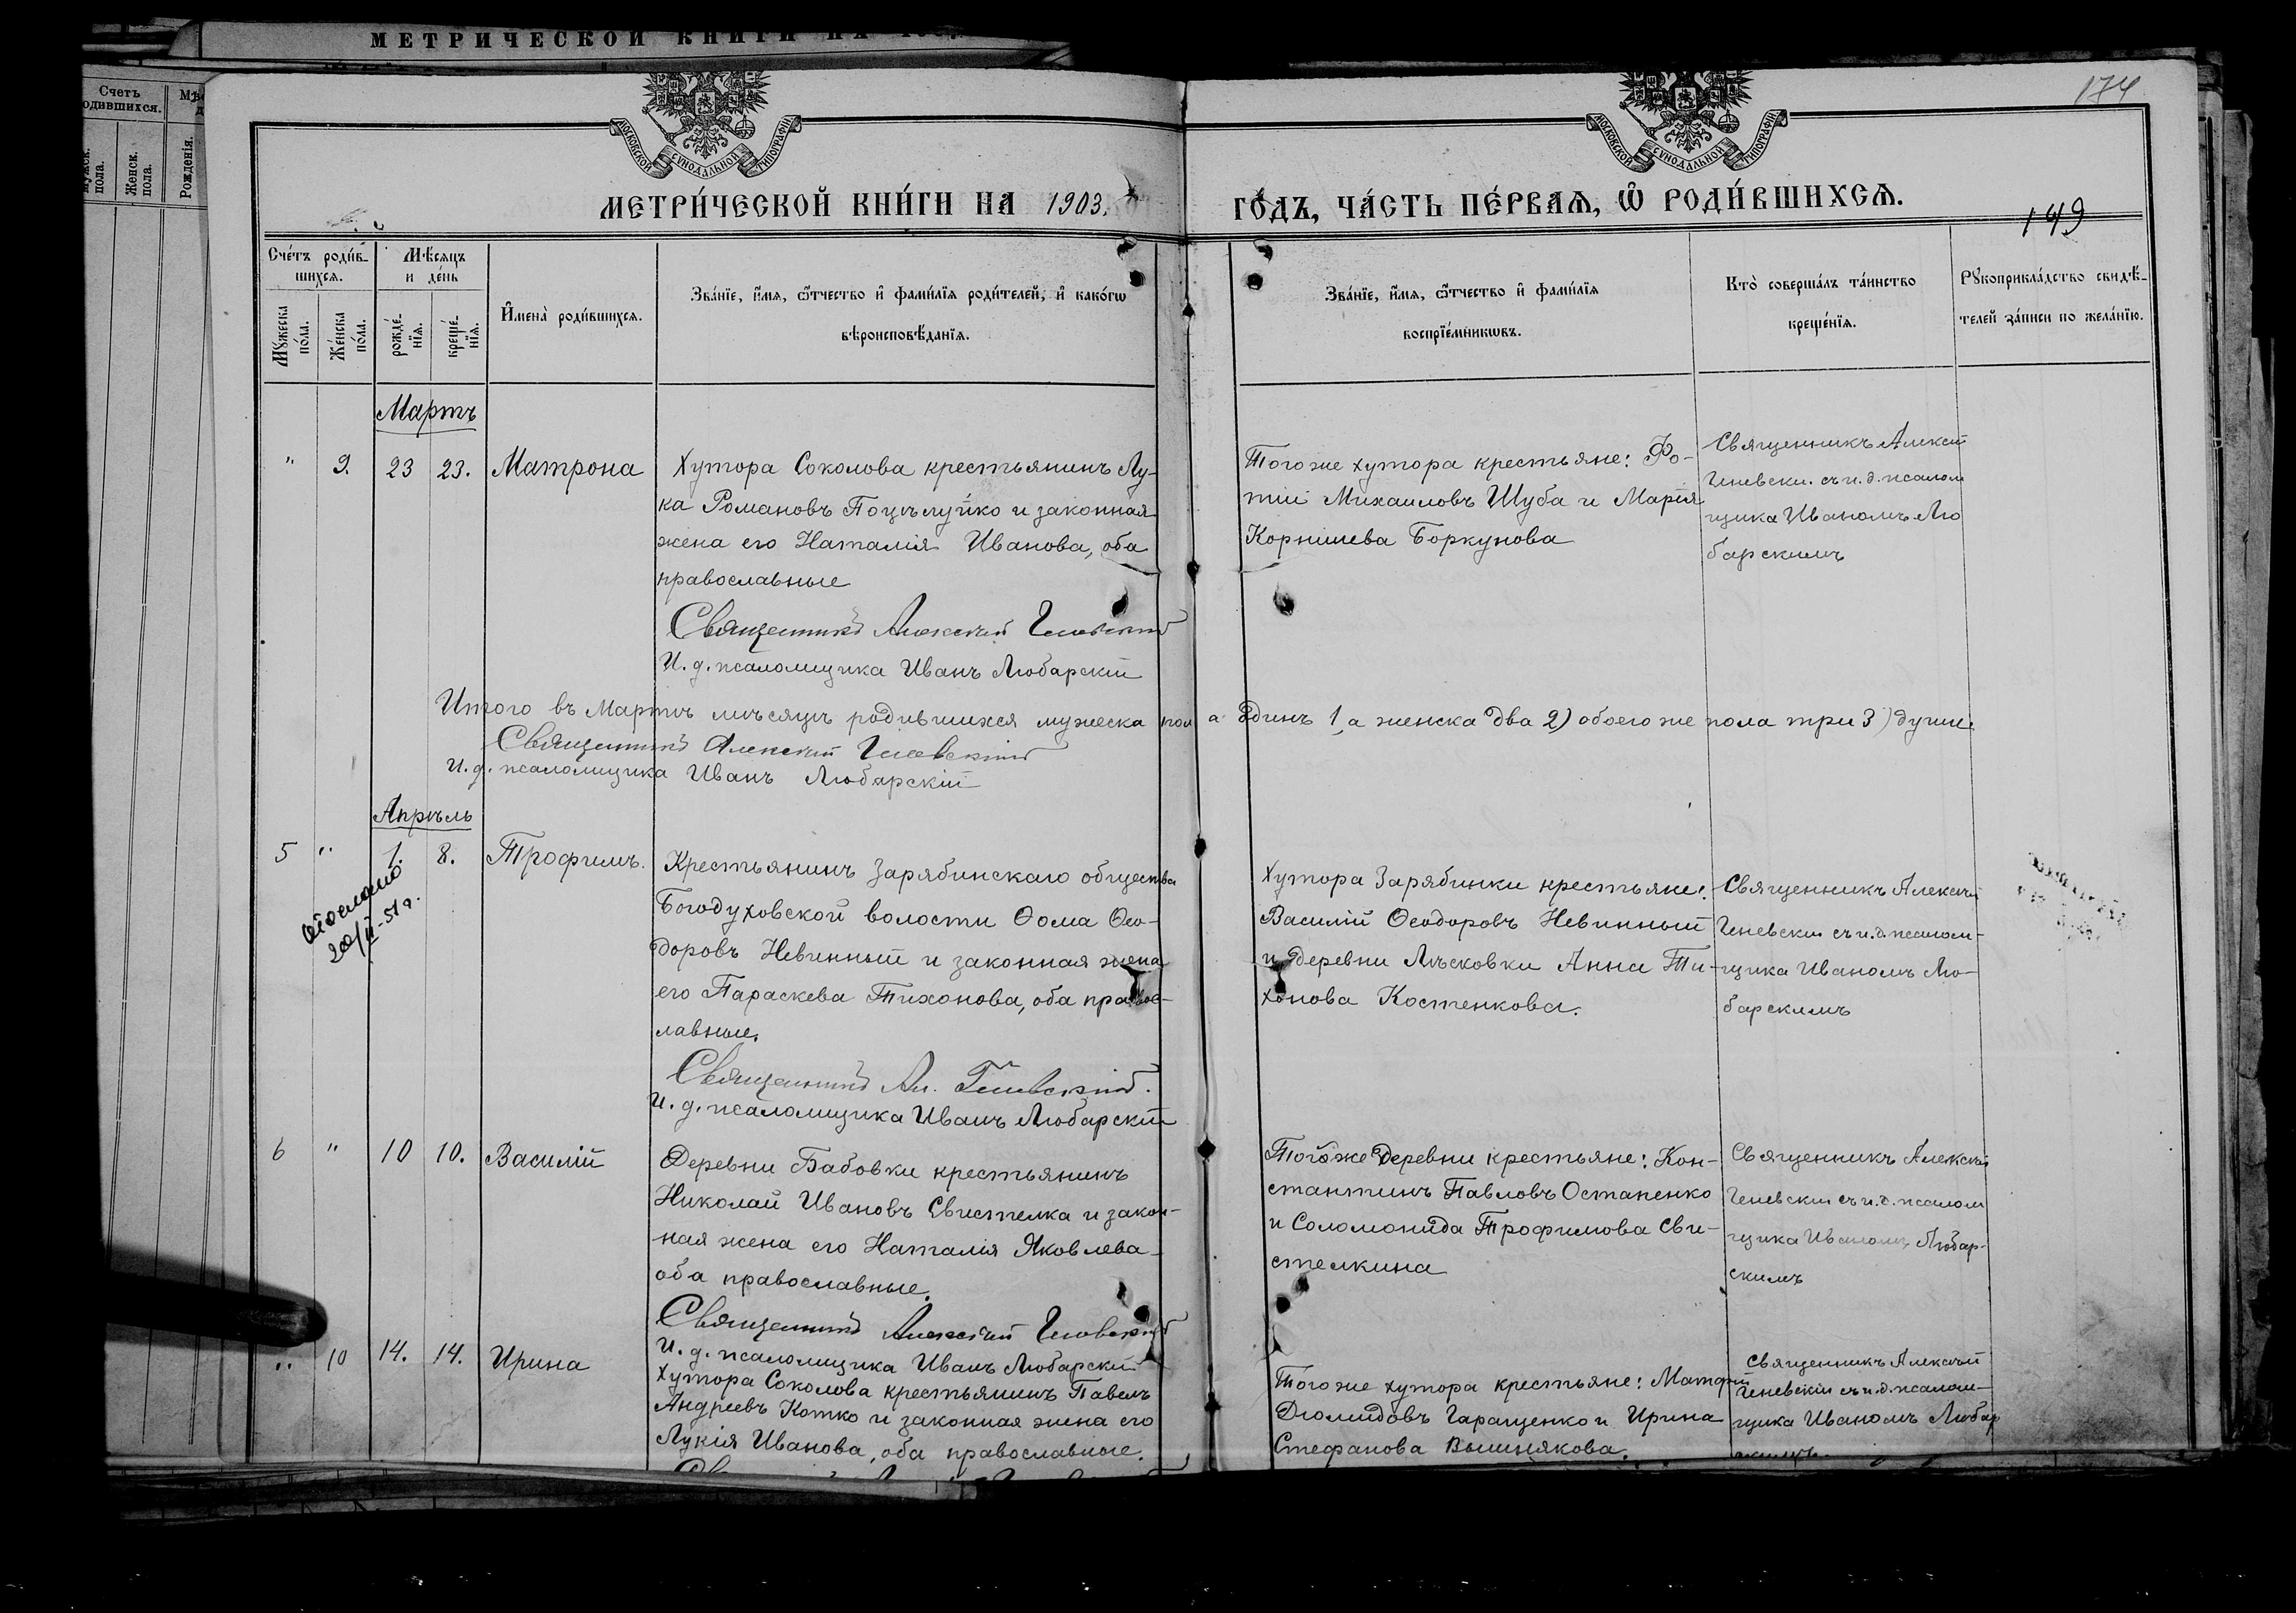 МЕТРИЧЕСКОЙ КНИГИ НА
Счетъ
одившихся.
Женск.
пола.
пола.
Рожденія.
МОСКОВСКОЙ СѴНОДАЛЬНОЙ ТИПОГРАФІИ
МОСКОВСКОЙ СѴНОДАЛЬНОЙ ТИПОГРАФІИ
174
МЕТРИ́ЧЕСКОЙ КНИ́ГИ НА 1903.
ГО́ДЪ, ЧА́СТЬ ПЕ́РВАѦ, Ѡ҆ РОДИ́ВШИХСѦ.
149
Сче́тъ роди́в-
шихсѧ.
Мѣ́сѧцъ
и де́нь
Мꙋ́жеска
по́ла.
Же́нска
по́ла.
рожде́-
нїѧ.
креще́-
нїѧ.
И҆мена̀ роди́вшихсѧ.
Зва́нїе, и҆́мѧ, ѻ҆́тчество и҆ фами́лїѧ роди́телей, и҆ како́гѡ
вѣроисповѣ́данїѧ.
Зва́нїе, и҆́мѧ, ѻ҆́тчество и҆ фами́лїѧ
воспрїе́мникѡвъ.
Кто̀ соверша́лъ та́инство
креще́нїѧ.
Рꙋкоприкла́дство свидѣ́-
телей за́писи по жела́нїю.
Мартъ
" 9. 23 23. Матрона
Хутора Соколова крестьянинъ Лу-
ка Романовъ Поцѣлуйко и законная
жена его Наталія Иванова, оба
православные
Священникъ Алексій Геневскій
И. д. псаломщика Иванъ Любарскій
Тогоже хутора крестьяне: Фо-
тій Михаиловъ Шуба и Марія
Корнилева Боркунова
Священникъ Алексій
Геневскі. съ и. д. псалом
щика Иваномъ Лю
барскимъ
Итого въ Мартѣ мѣсяцѣ родившихся мужеска пола одинъ 1, а женска два 2) обоего же пола три 3) души.
Священникъ Алексій Геневскій
И. д. псаломщика Иванъ Любарскій
Апрѣль
5 " 1. 8. Трофимъ.
Отослано
20/II-51 г.
Крестьянинъ Зарябинскаго общества
Богодуховской волости Ѳома Ѳео-
доровъ Невинный и законная жена
его Параскева Тихонова, оба правос-
лавные.
Священникъ Ал. Геневскій.
И. д. псаломщика Иванъ Любарскій
Хутора Зарябинки крестьяне:
Василій Ѳеодоровъ Невинный
и деревни Лѣсковки Анна Ти-
хонова Костенкова.
Священникъ Алексѣй
Геневскій съ и. д. псалом-
щика Иваномъ Лю-
барскимъ
6 " 10 10. Василій
Деревни Бабовки крестьянинъ
Николай Ивановъ Свистелка и закон-
ная жена его Наталія Яковлева
оба православные.
Священникъ Алексій Геневскій
И. д. псаломщика Иванъ Любарскій
Тойже деревни крестьяне: Кон-
стантинъ Павловъ Остапенко
и Соломонида Трофимова Сви-
стелкина
Священникъ Алексѣй
Геневскій съ и. д. псалом
щика Иваномъ Любар-
скимъ
" 10 14. 14. Ирина
Хутора Соколова крестьянинъ Павелъ
Андреевъ Котко и законная жена его
Лукія Иванова, оба православные.
Тогоже хутора крестьяне: Матфій
Діомидовъ Гаращенко и Ирина
Стефанова Вышнякова.
Священникъ Алексѣй
Геневскій съ и. д. псалом-
щика Иваномъ Любар
скимъ.